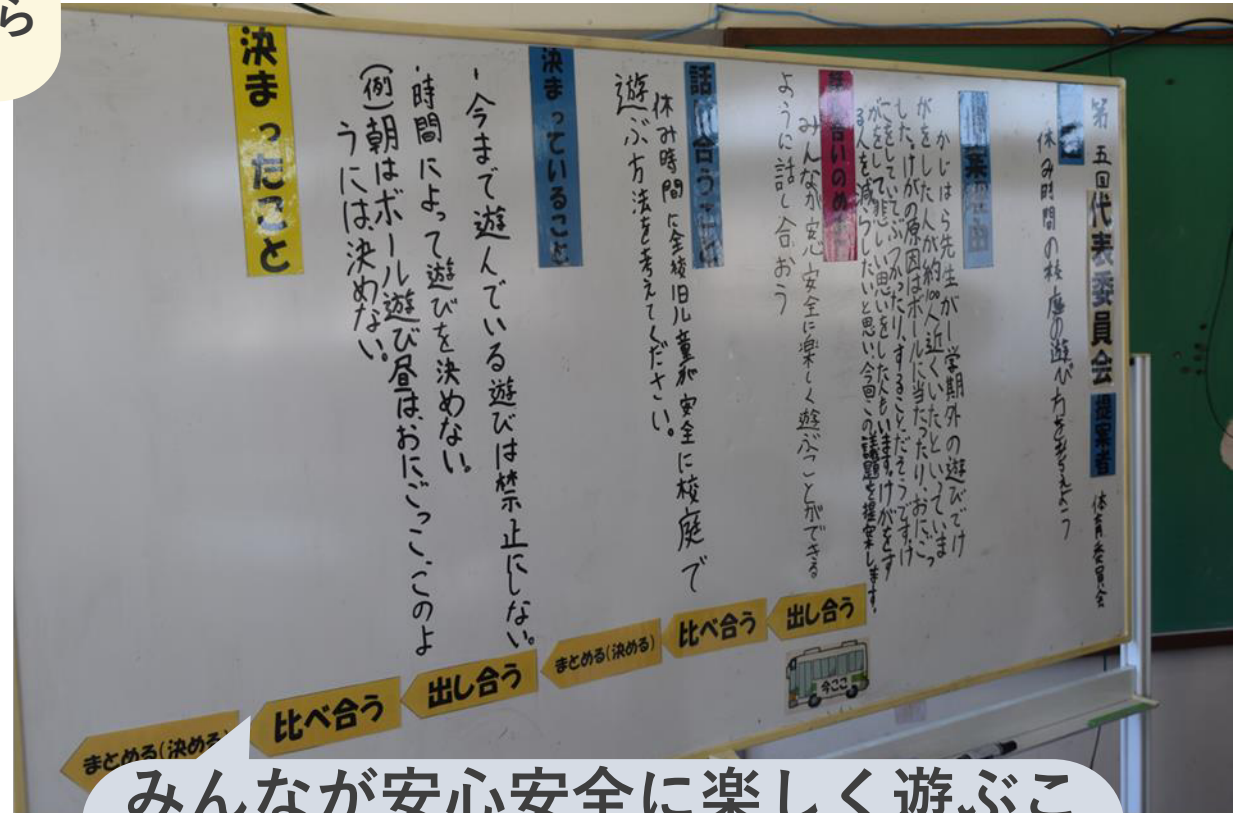 ら
第五回代表委員会 提案者 体育委員会
休み時間の校庭の遊び方を考えよう
かじはら先生が一学期外の遊びでけ
がをした人が約100人近くいたといっていま
した。けがの原因はボールに当たったり、おにごっ
こをしていてぶつかったり、することだそうです。け
がをして悲しい思いをした人もいます。けがをす
る人を減らしたいと思い今回この議題を提案します。
話し合いのめあて
みんなが安心安全に楽しく遊ぶことができる
ように話し合おう
話し合うこと
休み時間に全校児童が安全に校庭で
遊ぶ方法を考えてください。
決まっていること
・今まで遊んでいる遊びは禁止にしない。
・時間によって遊びを決めない。
(例)朝はボール遊び昼は、おにごっこ、このよ
うには、決めない。
決まったこと
出し合う
比べ合う
まとめる(決める)
出し合う
比べ合う
まとめる(決める)
今ここ
みんなが安心安全に楽しく遊ぶこ